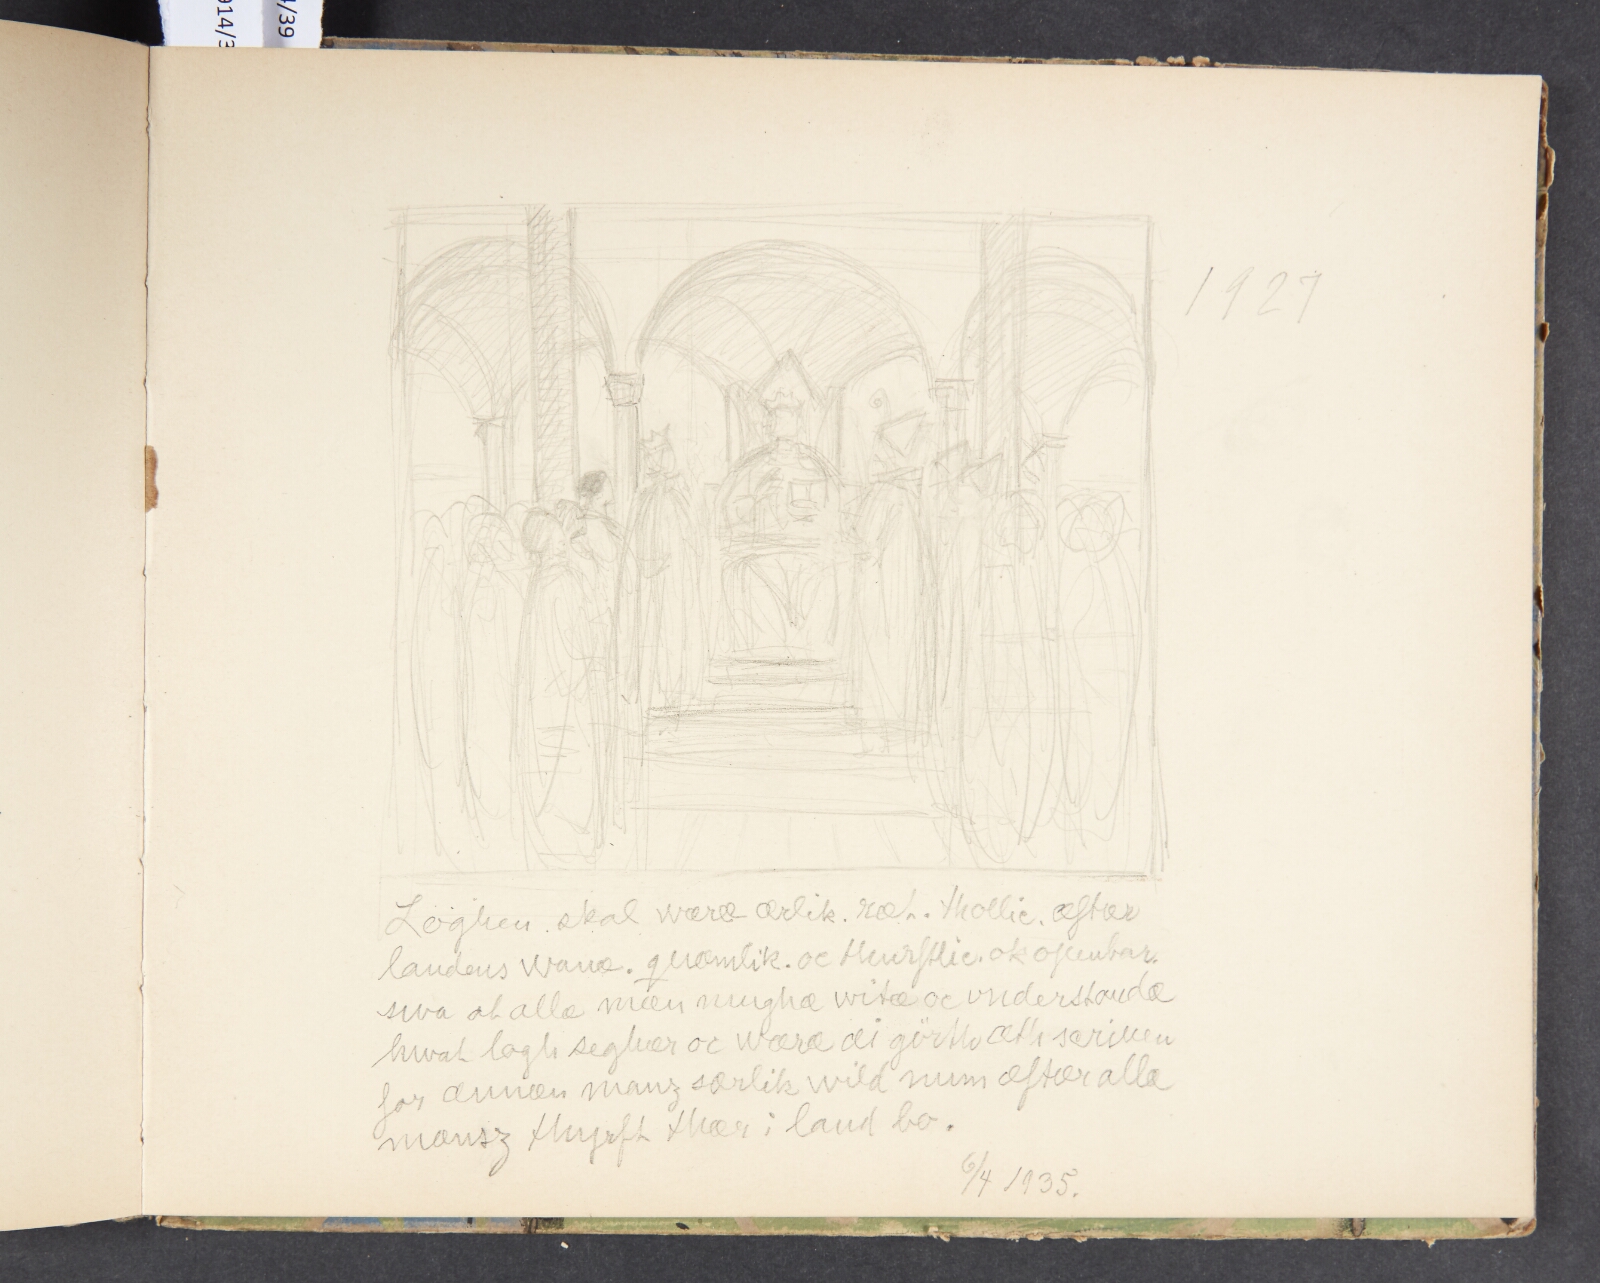 4/39
914/3
1927
Loghen. skal wæræ ærlik. ræt. thollic. æftær
landens wanæ. quæmlik. oc thurftlic. ok openbar.
swa at allæ mæn mughæ witæ oc vnderstandæ
hwat logh seghær oc wæræ æi görth æth scriuen
for ænnæn manz særlik wild num æftær allæ
mænsz thyrft thær i land bo.
6/4 1935.